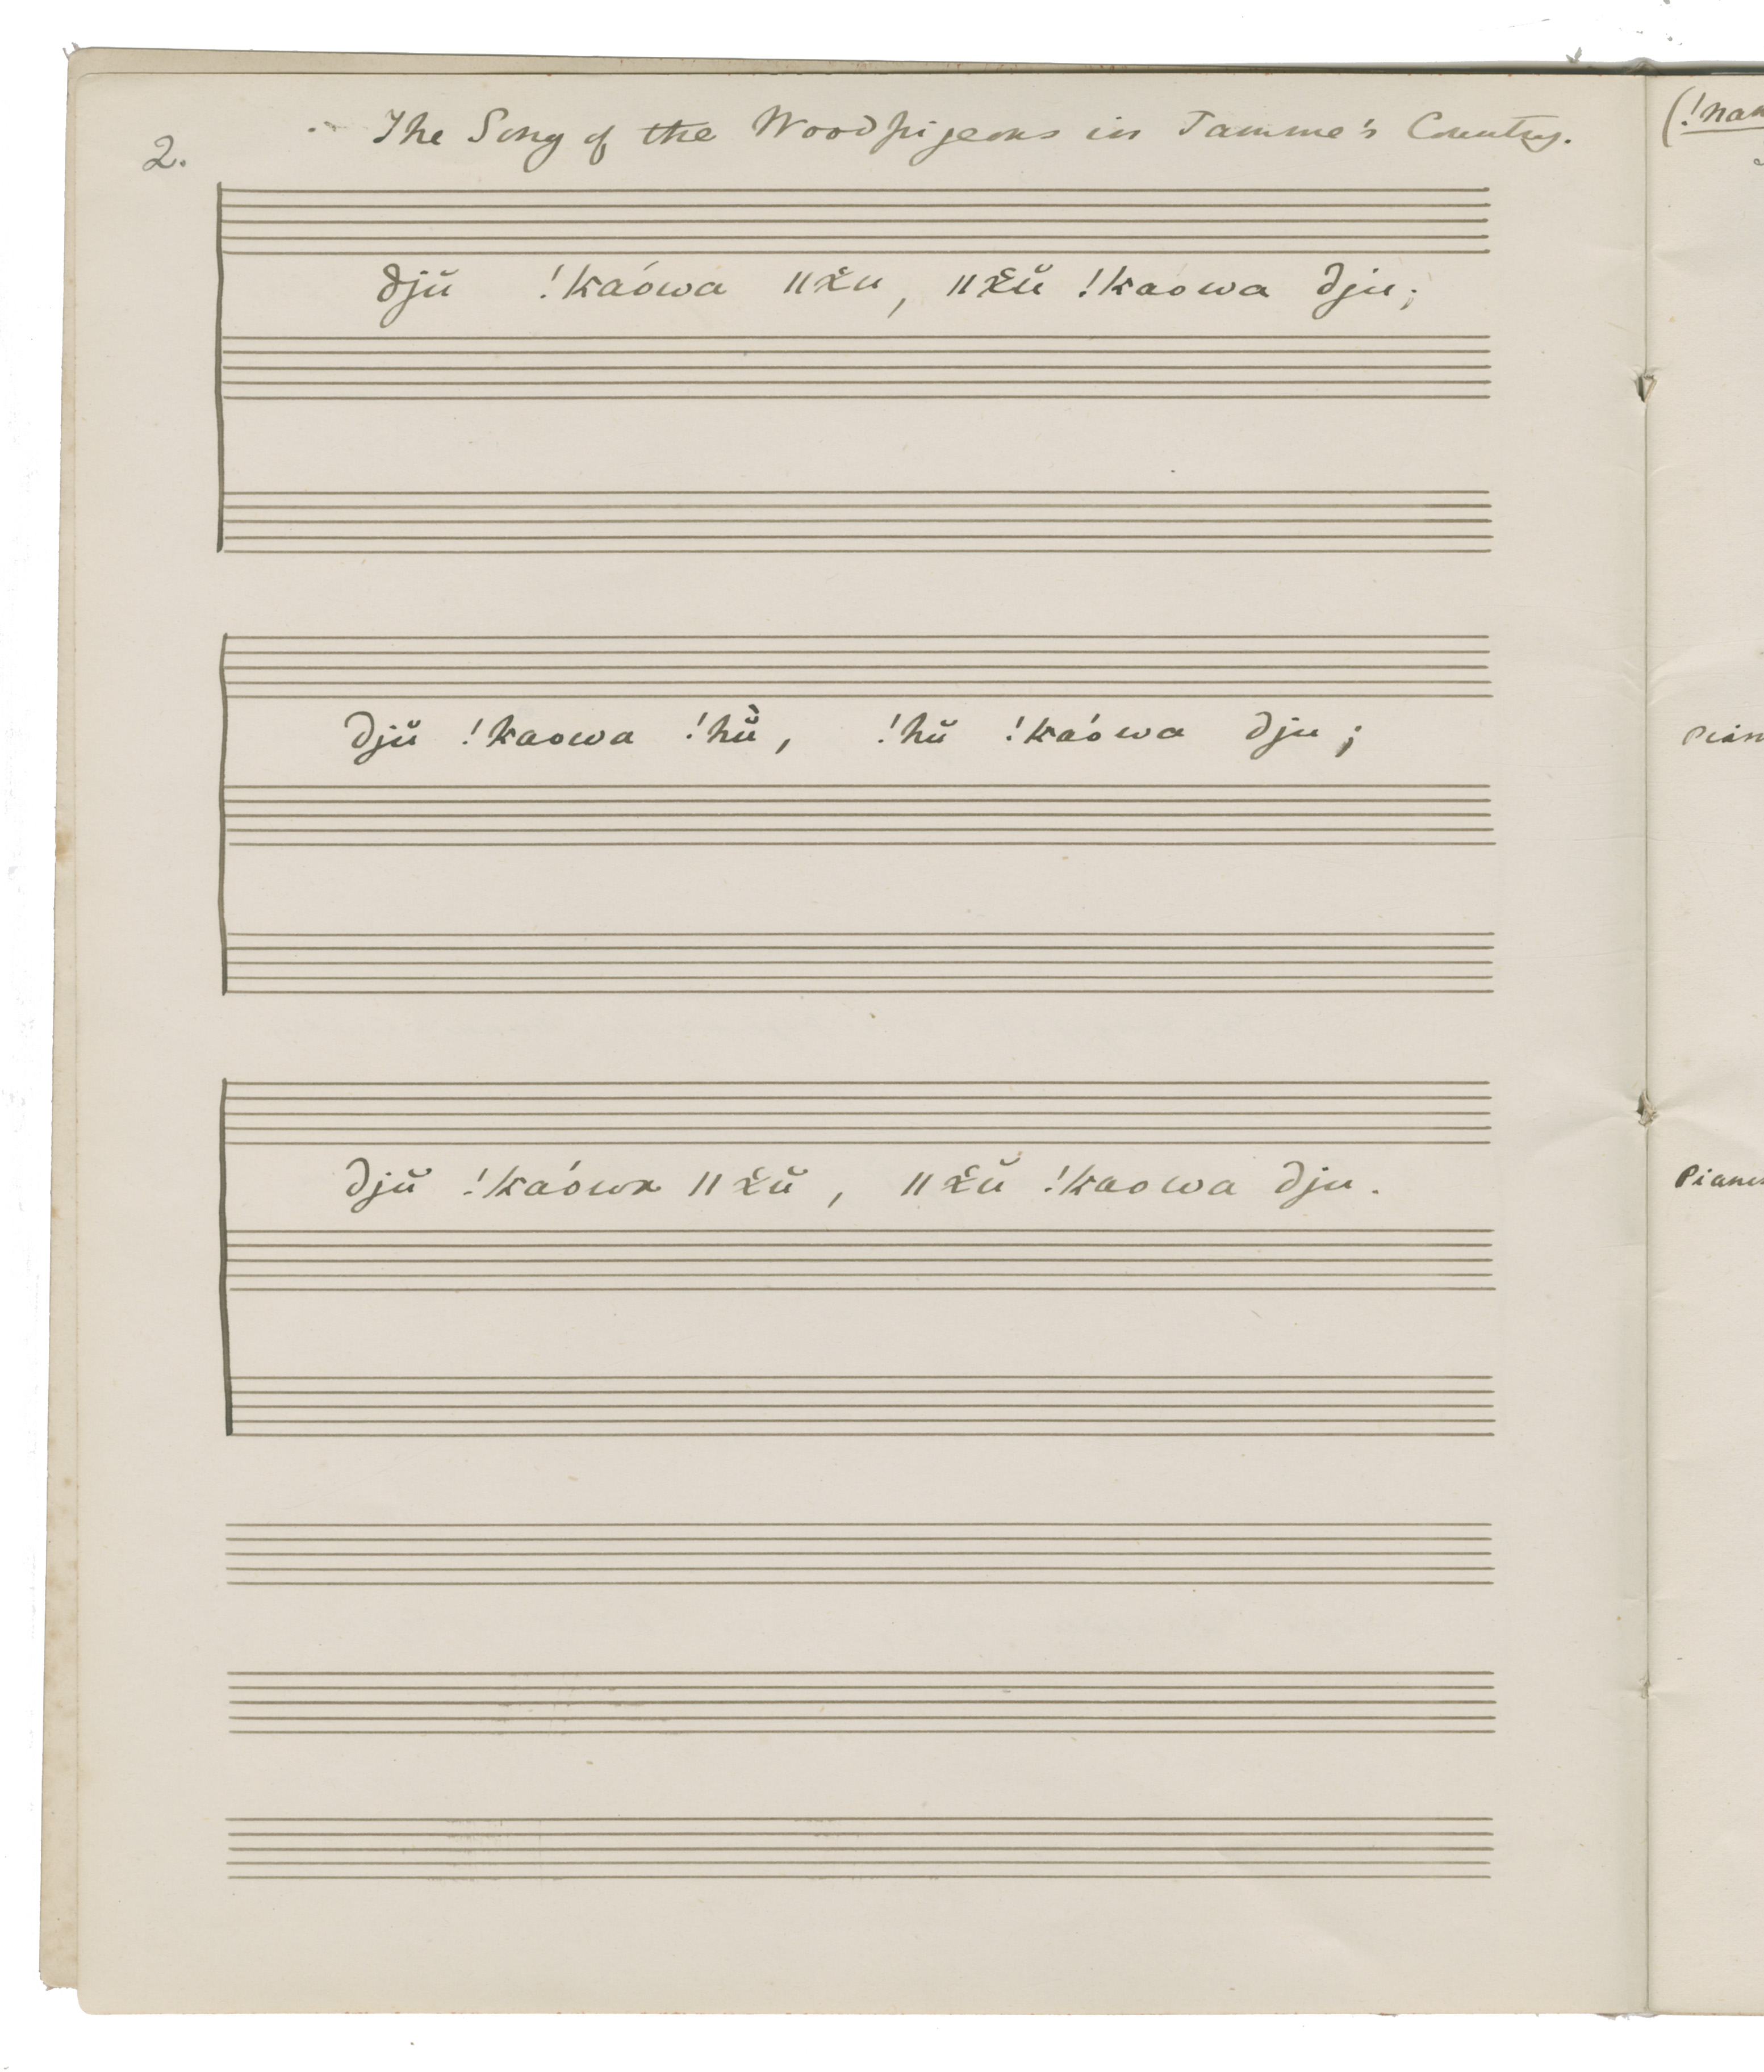 The Song of the Woodpigeons in Tamme's Country.
2.
djŭ !kaówa ǁx̆u, ǁx̆ŭ !kaowa dju;
djŭ !kaowa !hŭ̀, !hŭ !kaówa dju;
djŭ !kaówa ǁx̆ŭ, ǁx̆ŭ !kaowa dju.